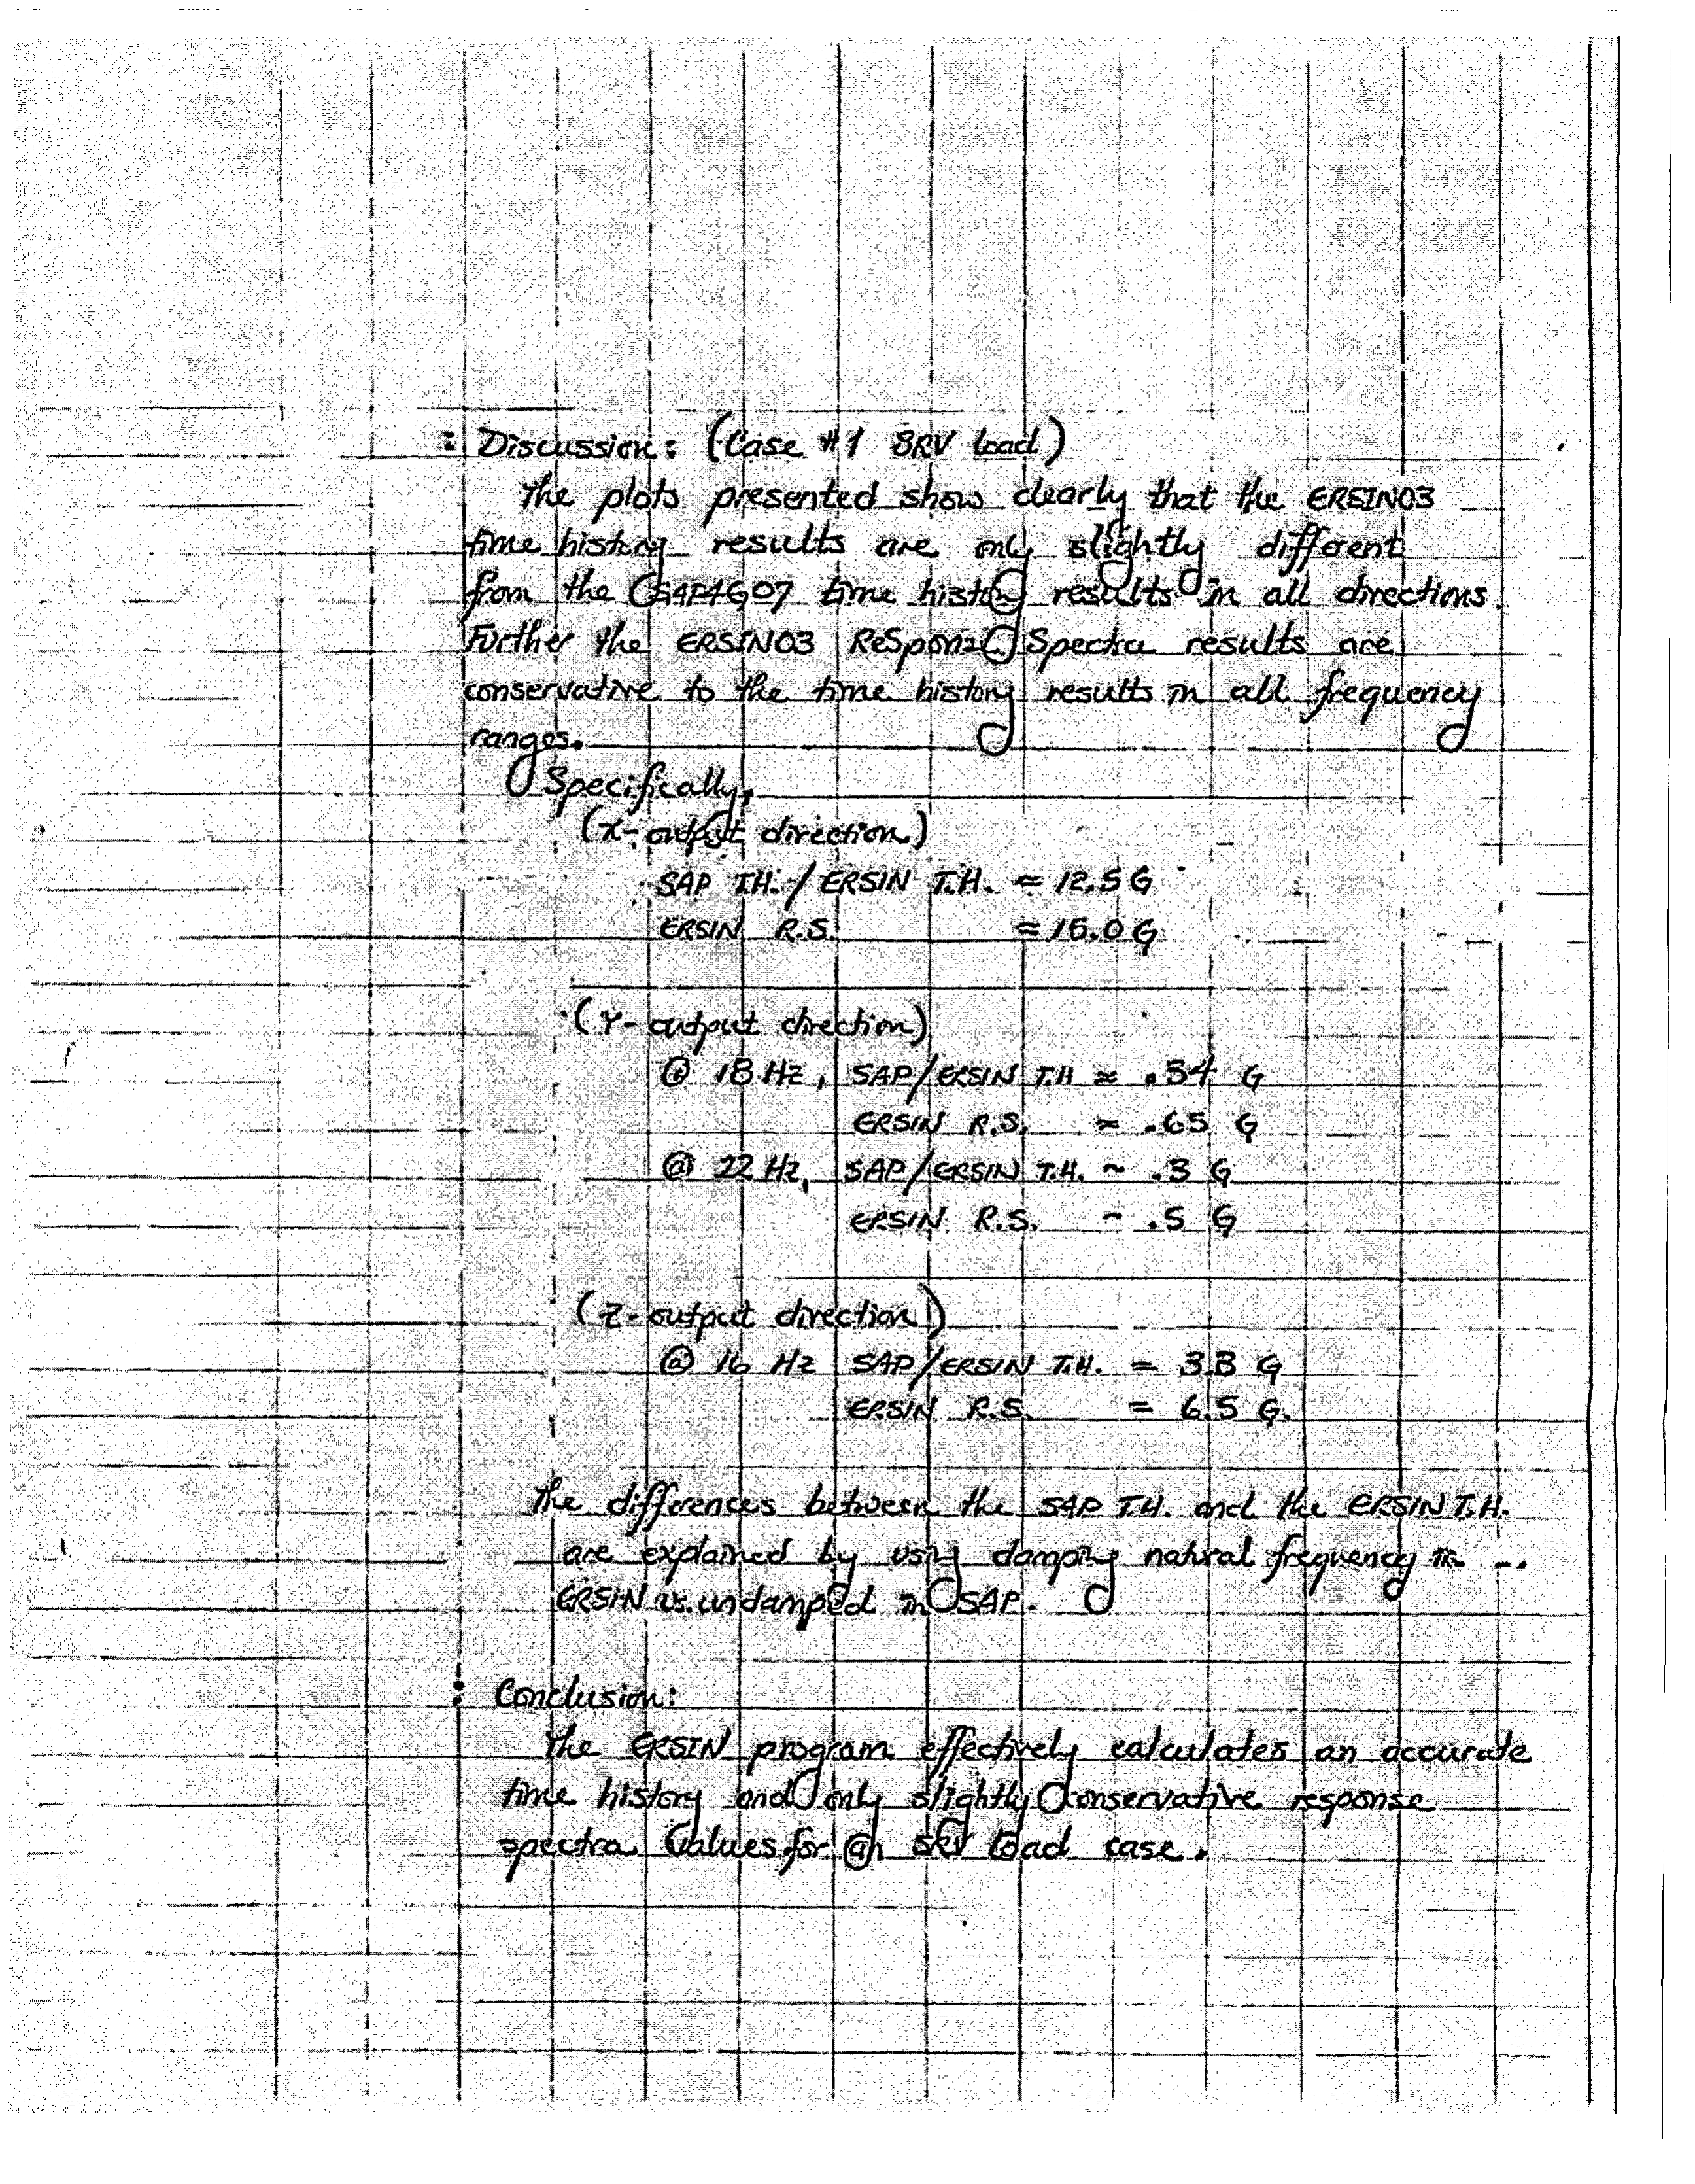 : Discussion: (Case #1 SRV load)
The plots presented show clearly that the ERSIN03
time history results are only slightly different
from the GSAP4G07 time history results in all directions.
Further the ERSIN03 Response Spectra results are
conservative to the time history results in all frequency
ranges.
Specifically,
(X-output direction)
SAP T.H. / ERSIN T.H. = 12.5 G
ERSIN R.S. = 15.0 G
(Y-output direction)
@ 18 Hz, SAP/ERSIN T.H ≈ .34 G
ERSIN R.S. ≈ .65 G
@ 22 Hz, SAP/ERSIN T.H. ~ .3 G
ERSIN R.S. ~ .5 G
(Z-output direction)
@ 16 Hz SAP/ERSIN T.H. = 3.8 G
ERSIN R.S. = 6.5 G.
The differences between the SAP T.H. and the ERSIN T.H.
are explained by using damping natural frequency in
ERSIN vs. undamped in SAP.
: Conclusion:
The ERSIN program effectively calculates an accurate
time history and only slightly conservative response
spectra values for an SRV load case.